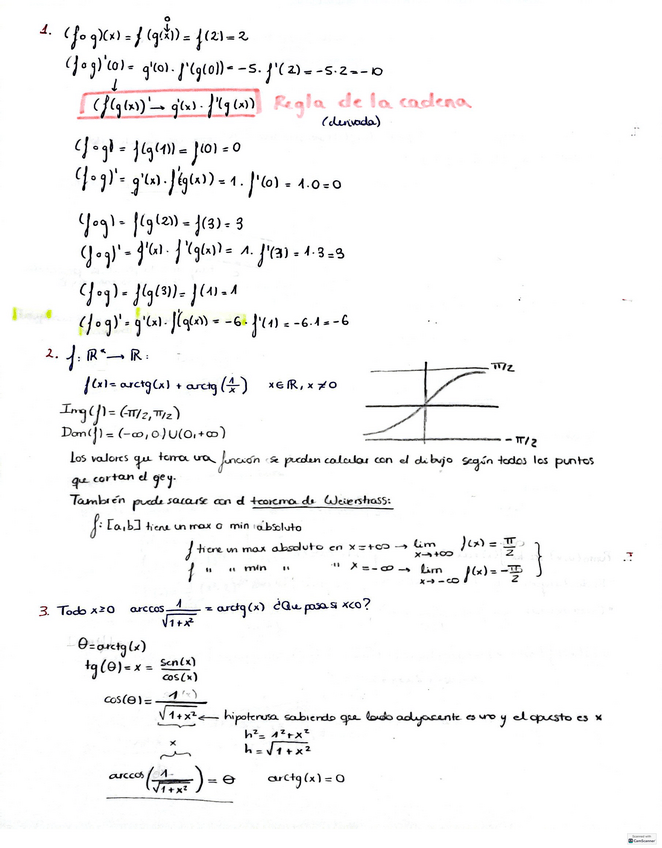 0
1. (f∘g)(x) = f(g(x)) = f(2) = 2
(f∘g)'(0) = g'(0) · f'(g(0)) = -5 · f'(2) = -5·2 = -10
↓
(f(g(x))' → g'(x) · f'(g(x)) Regla de la cadena
(derivada)
(f∘g) = f(g(1)) = f(0) = 0
(f∘g)' = g'(x) · f'(g(x)) = 1 · f'(0) = 1.0 = 0
(f∘g) = f(g(2)) = f(3) = 3
(f∘g)' = g'(x) · f'(g(x)) = 1. f'(3) = 1·3 = 3
(f∘g) = f(g(3)) = f(1) = 1
(f∘g)' = g'(x) · f'(g(x)) = -6 · f'(1) = -6.1 = -6
2. f: ℝ* → ℝ:
f(x) = arctg(x) + arctg(1/x) x∈ℝ, x ≠ 0
π/2
Img(f) = (-π/2, π/2)
Dom(f) = (-∞, 0) ∪ (0, +∞)
-π/2
Los valores que toma una función se pueden calcular con el dibujo según todos los puntos
que cortan el gey.
También puede sacarse con el teorema de Weierstrass:
f: [a,b] tiene un max o min absoluto
f tiene un max absoluto en x = +∞ → lim x→+∞ f(x) = π/2
f " " min " " x = -∞ → lim x→-∞ f(x) = -π/2
3. Todo x≥0 arccos 1/√(1+x²) = arctg(x) ¿Qué pasa si x<0?
θ = arctg(x)
tg(θ) = x = sen(x)/cos(x)
cos(θ) = 1/√(1+x²) ← hipotenusa sabiendo que lado adyacente es uno y el opuesto es x
h² = 1² + x²
x h = √(1+x²)
arccos(1/√(1+x²)) = θ arctg(x) = 0
Scanned with
CamScanner